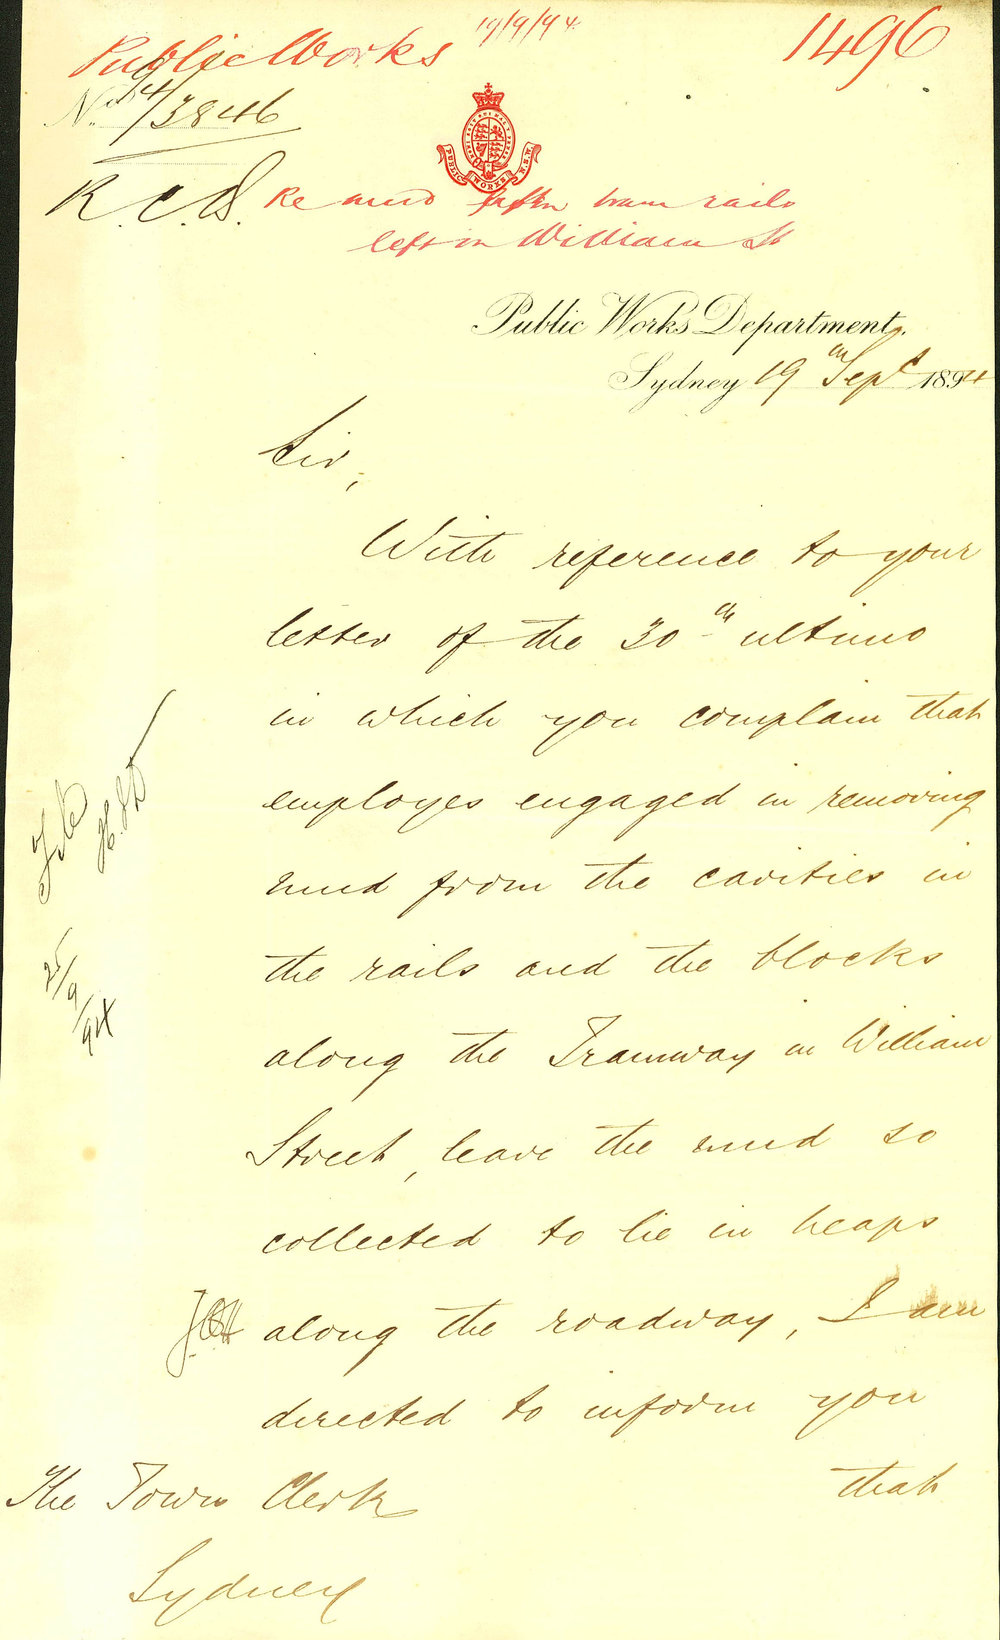 Public Works 19/9/94
1496
No. 94/3846
R.C.S.
Re mud from tram rails
left in William St
PUBLIC WORKS N.S.W.
Public Works Department,
Sydney 19th Sept 1894
Sir,
With reference to your
letter of the 30th ultimo
in which you complain that
employes engaged in removing
mud from the cavities in
the rails and the blocks
along the Tramway in William
Street, leave the mud so
collected to lie in heaps
along the roadway, I am
directed to inform you
that
The Town Clerk
Sydney
25/9/94